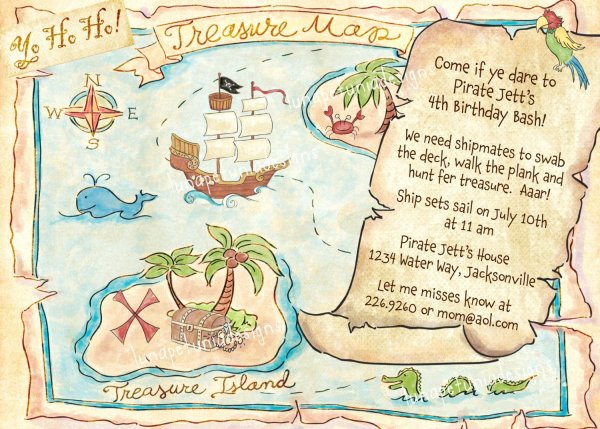 Yo Ho Ho!
Treasure Map
N
W E
S
Come if ye dare to
Pirate Jett's
4th Birthday Bash!
We need shipmates to swab
the deck, walk the plank and
hunt fer treasure. Aaar!
Ship sets sail on July 10th
at 11 am
Pirate Jett's House
1234 Water Way, Jacksonville
Let me misses know at
226.9260 or mom@aol.com
Treasure Island